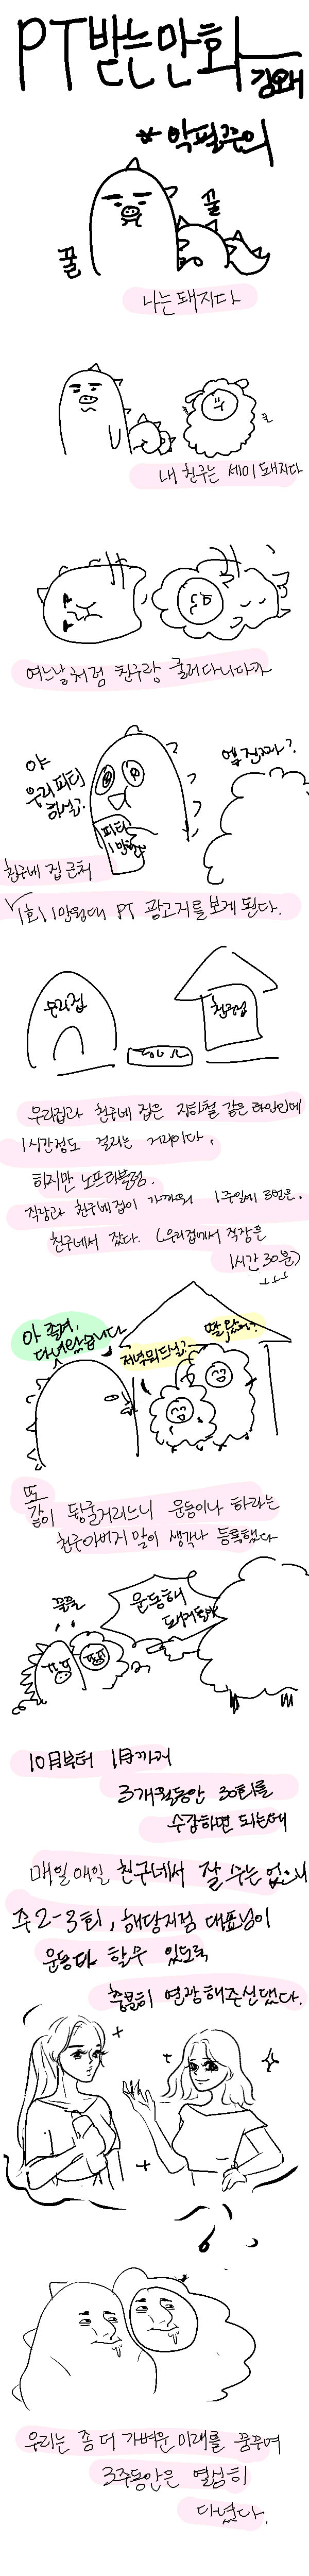 PT받는만화
김왜
* 악필주의
꿀
꿀
나는 돼지다
내 친구는 세미 돼지다
여느날처럼 친구랑 굴러다니다가
야
우리 피티
하실?
엥 진짜?
피티
1만원
친구네 집 근처
1회 1만원대 PT 광고지를 보게 된다.
우리집
친구집
우리집과 친구네 집은 지하철 같은 라인인데
1시간정도 걸리는 거리이다.
하지만 노프라블럼.
직장과 친구네집이 가까워 1주일에 3번은
친구네서 잤다. (우리집에서 직장은
1시간 30분)
아 졸려,
다녀왔습니다
저녁뭐드실?
딸 왔어?
또
같이 뒹굴거리느니 운동이나 하라는
친구아버지 말이 생각나 등록했다
꿀꿀
운동해
돼지들아
10月부터 1月까지
3개월동안 30회를
수강하면 되는데
매일매일 친구네서 잘 수는 없으니
주 2-3회, 해당지점 대표님이
운동다 할수 있도록
충분히 연장해주신댔다.
우리는 좀 더 가벼운 미래를 꿈꾸며
3주동안은 열심히
다녔다.